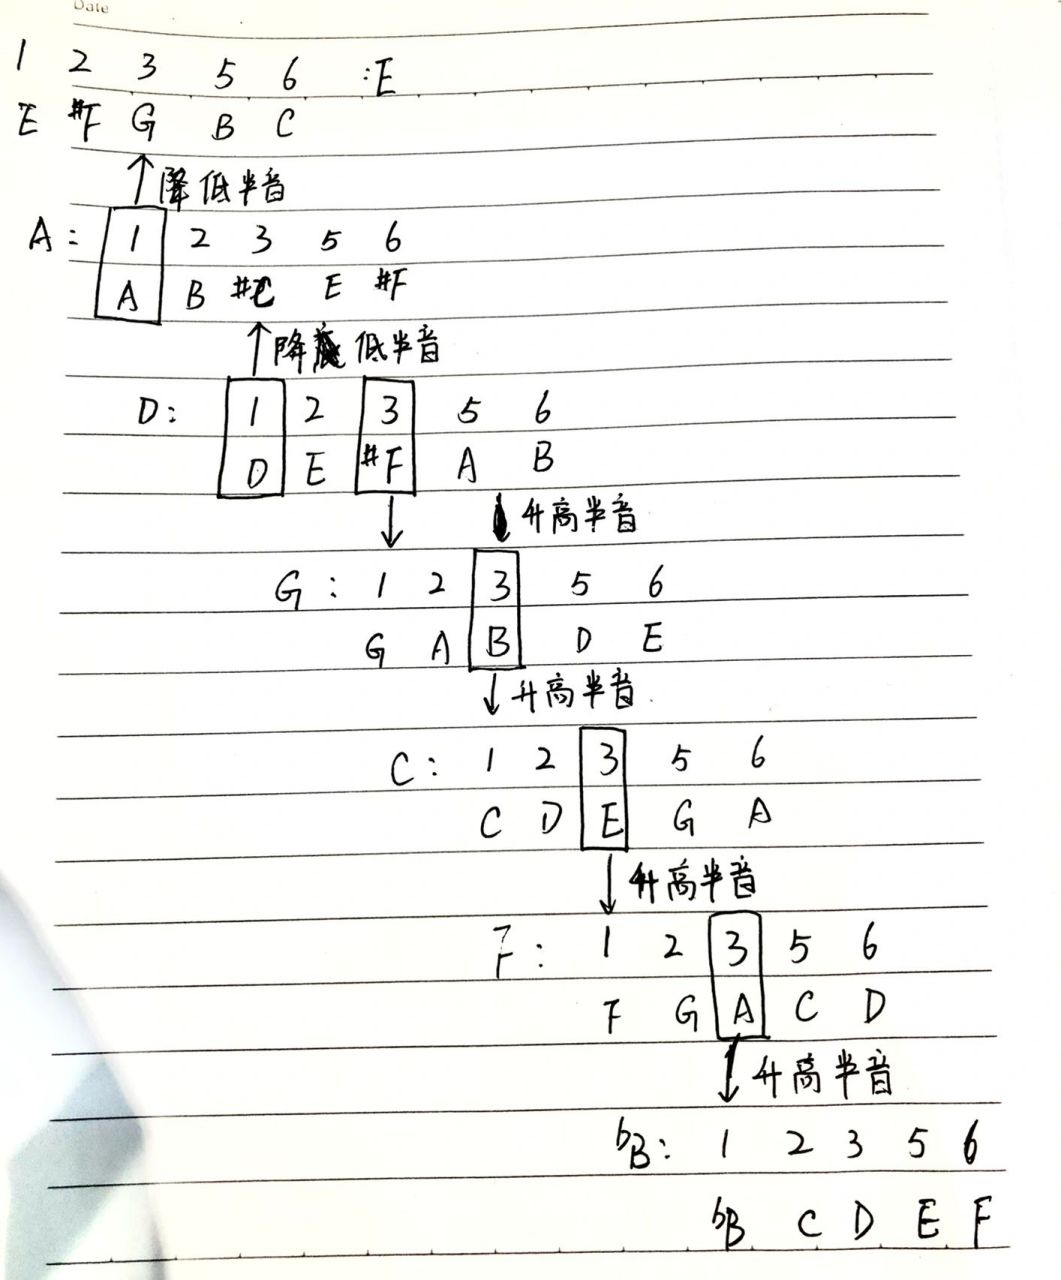 Date
1 2 3 5 6 :E
E #F G B C
降低半音
A: 1 2 3 5 6
A B #C E #F
降低半音
D: 1 2 3 5 6
D E #F A B
升高半音
G: 1 2 3 5 6
G A B D E
升高半音
C: 1 2 3 5 6
C D E G A
升高半音
F: 1 2 3 5 6
F G A C D
升高半音
bB: 1 2 3 5 6
bB C D E F